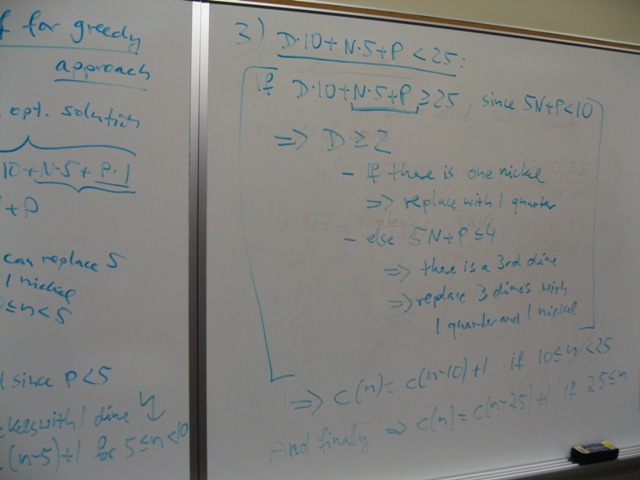 f for greedy
approach
opt. solution
10+N·5+P·1
+P
can replace 5
1 nickel
≤n<5
since P<5
with 1 dime
(n-5)+1 for 5≤n<10
3) D·10+N·5+P<25:
If D·10+N·5+P≥25, since 5N+P<10
⇒ D≥2
- If there is one nickel
⇒ replace with 1 quarter
- else 5N+P≤4
⇒ there is a 3rd dime
⇒ replace 3 dimes with
1 quarter and 1 nickel
⇒ C(n)= C(n-10)+1 if 10≤n<25
And finally ⇒ C(n)= C(n-25)+1 if 25≤n